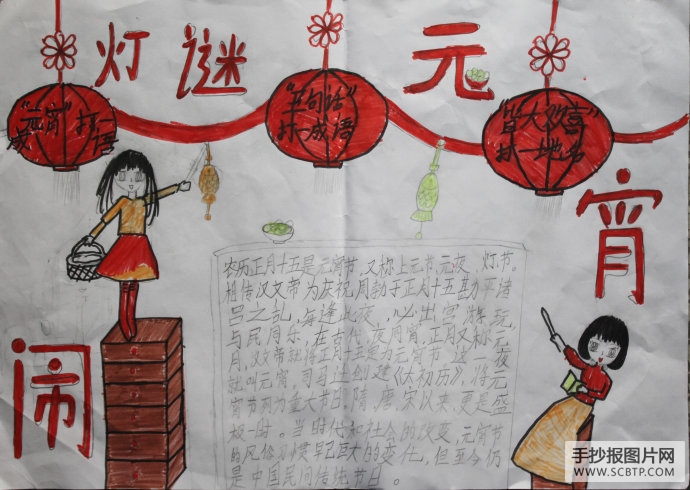 灯谜
元
宵
闹
"元宵"打一
成语
"五句话"
打一成语
"皆大欢喜"
打一地名
农历正月十五是元宵节,又称上元节、元夜、灯节。
相传汉文帝为庆祝周勃于正月十五勘平诸
吕之乱,每逢此夜,必出宫游玩,
与民同乐,在古代,夜同宵,正月又称元
月,汉文帝就将正月十五定为元宵节,这一夜
就叫元宵。司马迁创建《太初历》,将元
宵节列为重大节日。隋、唐、宋以来,更是盛
极一时。当时代和社会的改变,元宵节
的风俗习惯早已巨大的变化,但至今仍
是中国民间传统节日。
手抄报图片网
WWW.SCBTP.COM